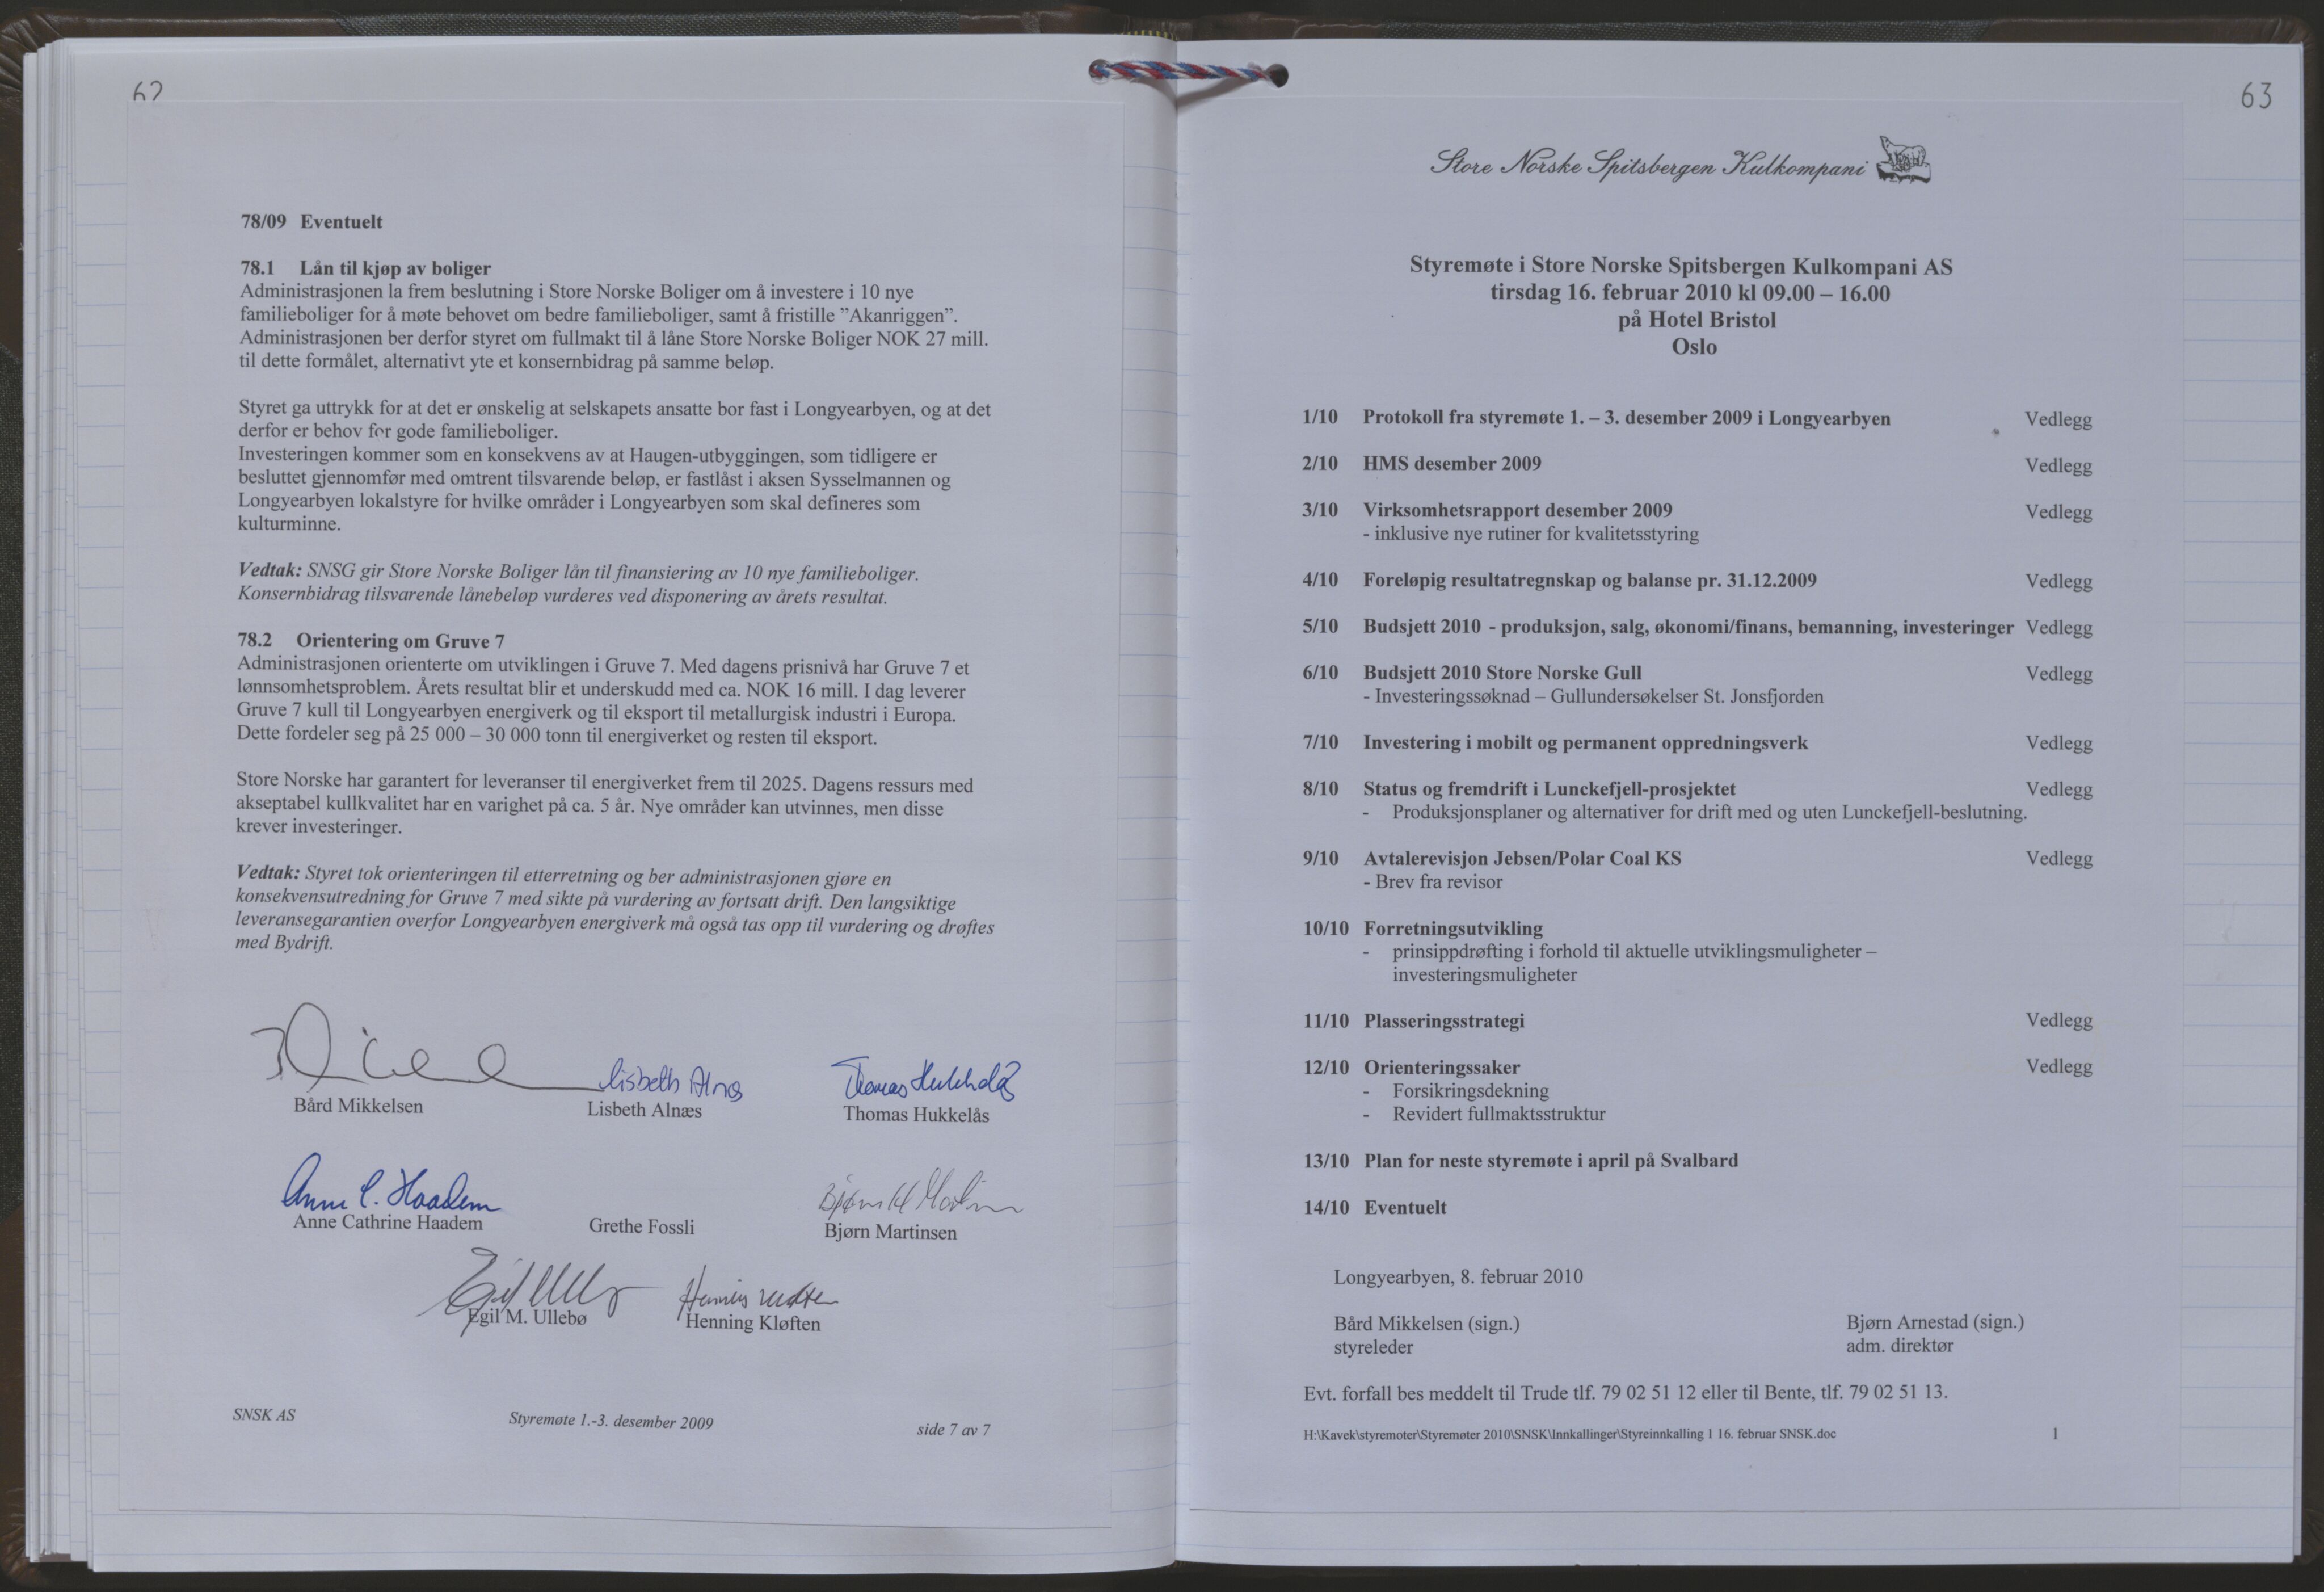 62
78/09 Eventuelt
78.1 Lån til kjøp av boliger
Administrasjonen la frem beslutning i Store Norske Boliger om å investere i 10 nye
familieboliger for å møte behovet om bedre familieboliger, samt å fristille ”Akanriggen”.
Administrasjonen ber derfor styret om fullmakt til å låne Store Norske Boliger NOK 27 mill.
til dette formålet, alternativt yte et konsernbidrag på samme beløp.
Styret ga uttrykk for at det er ønskelig at selskapets ansatte bor fast i Longyearbyen, og at det
derfor er behov for gode familieboliger.
Investeringen kommer som en konsekvens av at Haugen-utbyggingen, som tidligere er
besluttet gjennomfør med omtrent tilsvarende beløp, er fastlåst i aksen Sysselmannen og
Longyearbyen lokalstyre for hvilke områder i Longyearbyen som skal defineres som
kulturminne.
Vedtak: SNSG gir Store Norske Boliger lån til finansiering av 10 nye familieboliger.
Konsernbidrag tilsvarende lånebeløp vurderes ved disponering av årets resultat.
78.2 Orientering om Gruve 7
Administrasjonen orienterte om utviklingen i Gruve 7. Med dagens prisnivå har Gruve 7 et
lønnsomhetsproblem. Årets resultat blir et underskudd med ca. NOK 16 mill. I dag leverer
Gruve 7 kull til Longyearbyen energiverk og til eksport til metallurgisk industri i Europa.
Dette fordeler seg på 25 000 – 30 000 tonn til energiverket og resten til eksport.
Store Norske har garantert for leveranser til energiverket frem til 2025. Dagens ressurs med
akseptabel kullkvalitet har en varighet på ca. 5 år. Nye områder kan utvinnes, men disse
krever investeringer.
Vedtak: Styret tok orienteringen til etterretning og ber administrasjonen gjøre en
konsekvensutredning for Gruve 7 med sikte på vurdering av fortsatt drift. Den langsiktige
leveransegarantien overfor Longyearbyen energiverk må også tas opp til vurdering og drøftes
med Bydrift.
Lisbeth Alnæs Thomas Hukkelås
Bård Mikkelsen Lisbeth Alnæs Thomas Hukkelås
Anne C. Haadem Bjørn H Martinsen
Anne Cathrine Haadem Grethe Fossli Bjørn Martinsen
Egil M. Ullebø Henning Kløften
SNSK AS Styremøte 1.-3. desember 2009 side 7 av 7
63
Store Norske Spitsbergen Kulkompani
Styremøte i Store Norske Spitsbergen Kulkompani AS
tirsdag 16. februar 2010 kl 09.00 – 16.00
på Hotel Bristol
Oslo
1/10 Protokoll fra styremøte 1. – 3. desember 2009 i Longyearbyen Vedlegg
2/10 HMS desember 2009 Vedlegg
3/10 Virksomhetsrapport desember 2009 Vedlegg
- inklusive nye rutiner for kvalitetsstyring
4/10 Foreløpig resultatregnskap og balanse pr. 31.12.2009 Vedlegg
5/10 Budsjett 2010 - produksjon, salg, økonomi/finans, bemanning, investeringer Vedlegg
6/10 Budsjett 2010 Store Norske Gull Vedlegg
- Investeringssøknad – Gullundersøkelser St. Jonsfjorden
7/10 Investering i mobilt og permanent oppredningsverk Vedlegg
8/10 Status og fremdrift i Lunckefjell-prosjektet Vedlegg
- Produksjonsplaner og alternativer for drift med og uten Lunckefjell-beslutning.
9/10 Avtalerevisjon Jebsen/Polar Coal KS Vedlegg
- Brev fra revisor
10/10 Forretningsutvikling
- prinsippdrøfting i forhold til aktuelle utviklingsmuligheter –
investeringsmuligheter
11/10 Plasseringsstrategi Vedlegg
12/10 Orienteringssaker Vedlegg
- Forsikringsdekning
- Revidert fullmaktsstruktur
13/10 Plan for neste styremøte i april på Svalbard
14/10 Eventuelt
Longyearbyen, 8. februar 2010
Bård Mikkelsen (sign.) Bjørn Arnestad (sign.)
styreleder adm. direktør
Evt. forfall bes meddelt til Trude tlf. 79 02 51 12 eller til Bente, tlf. 79 02 51 13.
H:\Kavek\styremoter\Styremøter 2010\SNSK\Innkallinger\Styreinnkalling 1 16. februar SNSK.doc 1